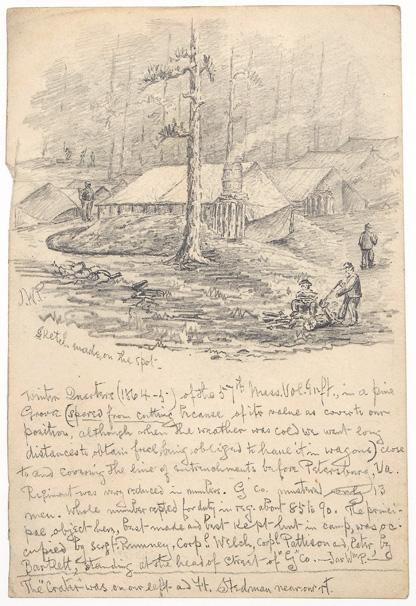 JWP.
Sketch made on the spot.
Winter Quarters (1864-5-) of the 57th Mass. Vol. Inft., in a pine
Grove (spared from cutting because of its value as cover to our
position, although when the weather was cold we went long
distances to obtain fuel, being obliged to haul it in wagons) close
to and covering the line of entrenchments before Petersburg, Va.
Regiment was very reduced in numbers. G Co. mustered only 13
men. Whole number rept'd for duty in reg. about 85 to 90. The princi-
pal object here, best made and best kept hut in camp, was oc-
cupied by Sergt. Pinkney, Corpl. Welch, Corpl. Pattison and, later, by
Bartlett, standing at the head of street of "G" Co.
The "Crater" was on our left and Ft. Stedman near our rt.